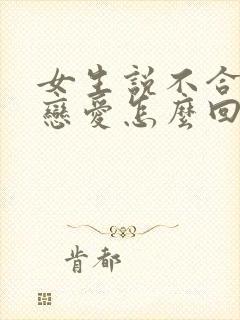 女生説不合
戀愛怎麼回
肯都